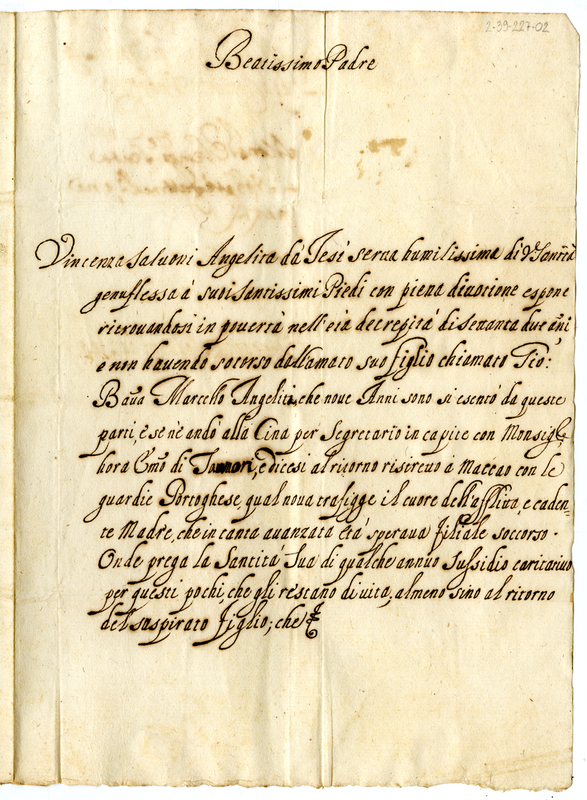 2-39-227-02
Beatissimo Padre
Vincenza Saluoni Angelita da Jesi serua humilissima di V. Santità
genuflessa à suoi Santissimi Piedi con piena diuotione espone
ritrouandosi in pouertà nell'età decrepità di Settanta due añi
e non hauendo socorso dall'amato suo figlio chiamato Gio:
Batta Marcello Angelita, che noue Anni sono si esentò da queste
parti, e se n'è andò alla Cina per Segretario in capite con Monsig.r
hora Emo di Tournon, e dicesi al ritorno ristretto à Maccao con le
guardie Portoghese, qual noua trafigge il cuore dell'afflitta, e caden-
te Madre, che in tanta auanzata età speraua filiale soccorso.
Onde prega la Santita Sua di qualche annuo Sussidio caritatiuo
per questi pochi, che gli restano di uita, almeno sino al ritorno
del suspirato figlio; che &